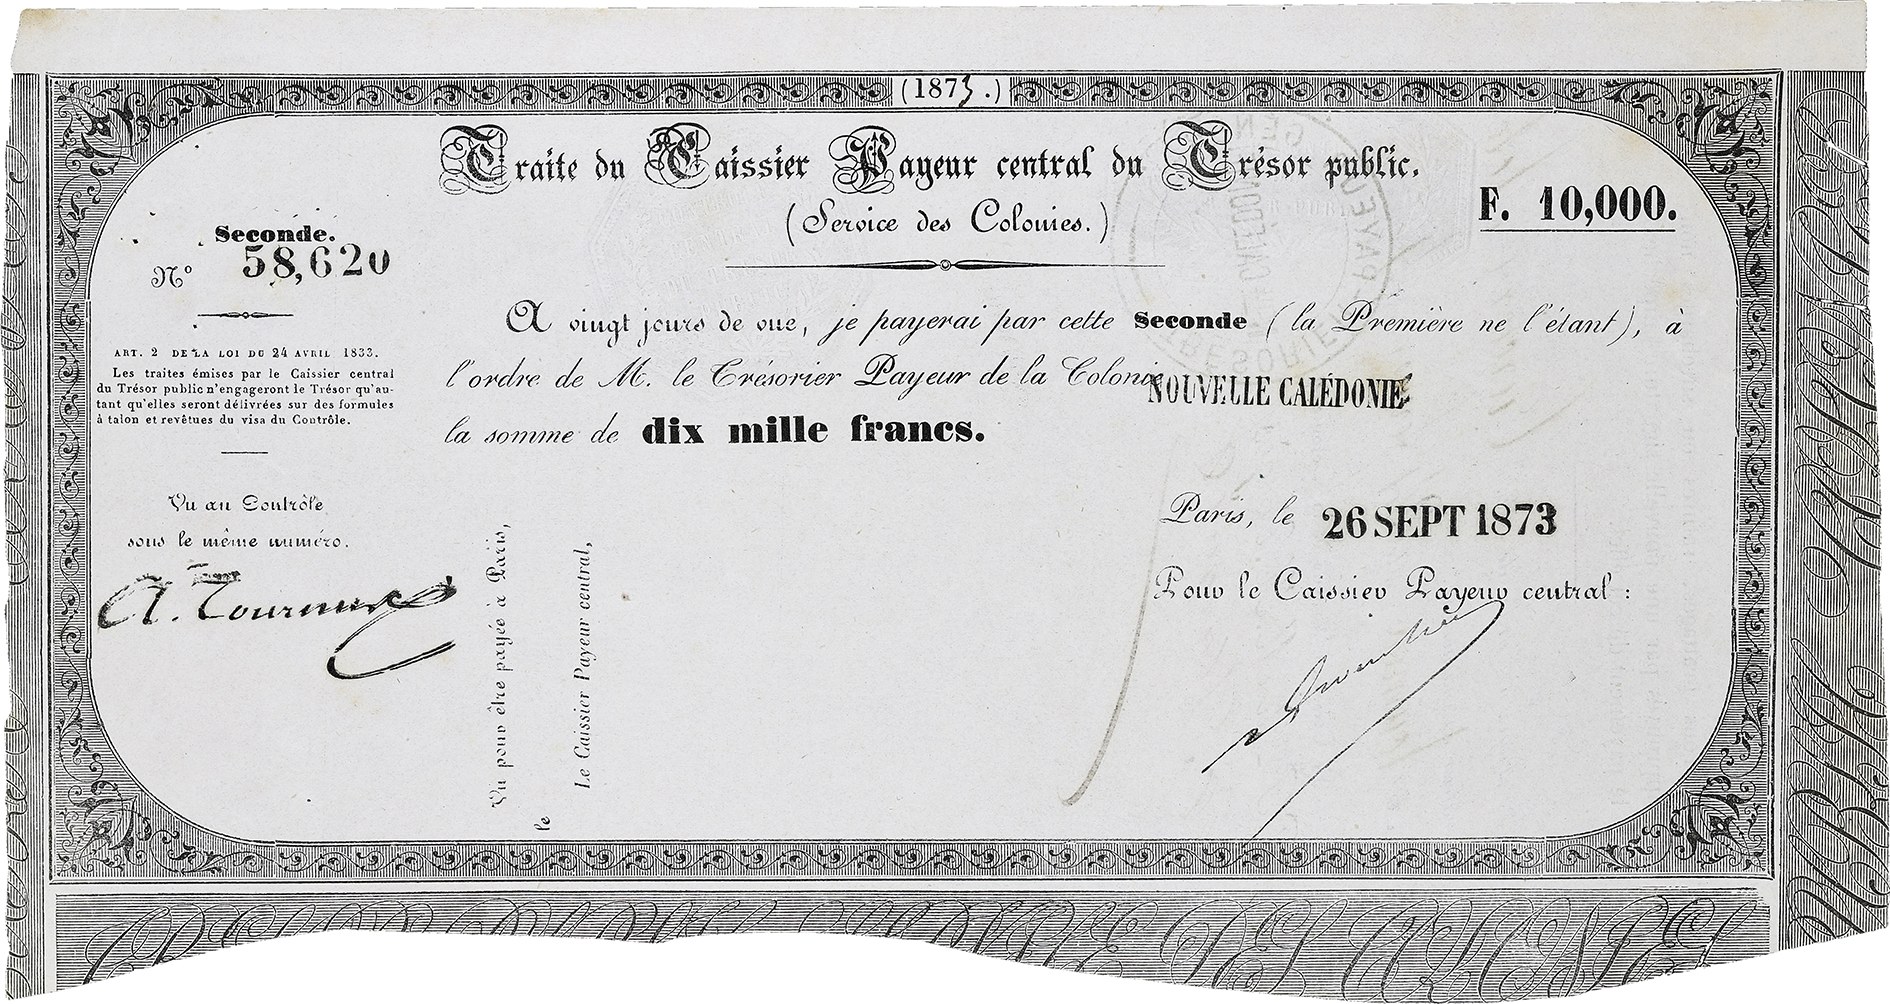 (1873.)
Traite du Caissier Payeur central du Trésor public.
(Service des Colonies.)
F. 10,000.
Seconde.
No 58,620
ART. 2 DE LA LOI DU 24 AVRIL 1833.
Les traites émises par le Caissier central
du Trésor public n'engageront le Trésor qu'au-
tant qu'elles seront délivrées sur des formules
à talon et revêtues du visa du Contrôle.
Vu au Contrôle
sous le même numéro.
A vingt jours de vue, je payerai par cette Seconde (la Première ne l'étant), à
l'ordre de M. le Trésorier Payeur de la Colonie NOUVELLE CALÉDONIE
la somme de dix mille francs.
Paris, le 26 SEPT 1873
Pour le Caissier Payeur central :
Vu pour être payée à Paris,
le
Le Caissier Payeur central,